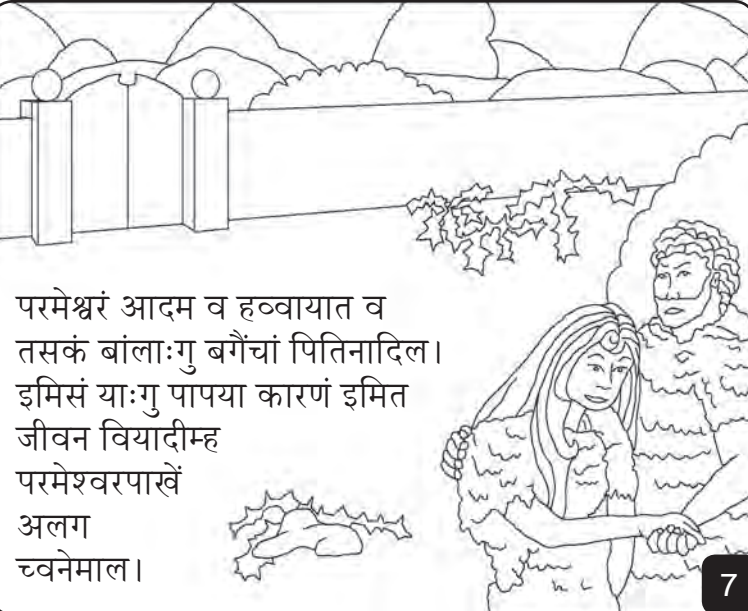 परमेश्वरं आदम व हव्वायात व
तसकं बांलाःगु बगैंचां पितिनादिल।
इमिसं याःगु पापया कारणं इमित
जीवन वियादीम्ह
परमेश्‍वरपाखें
अलग
च्वनेमाल।
7